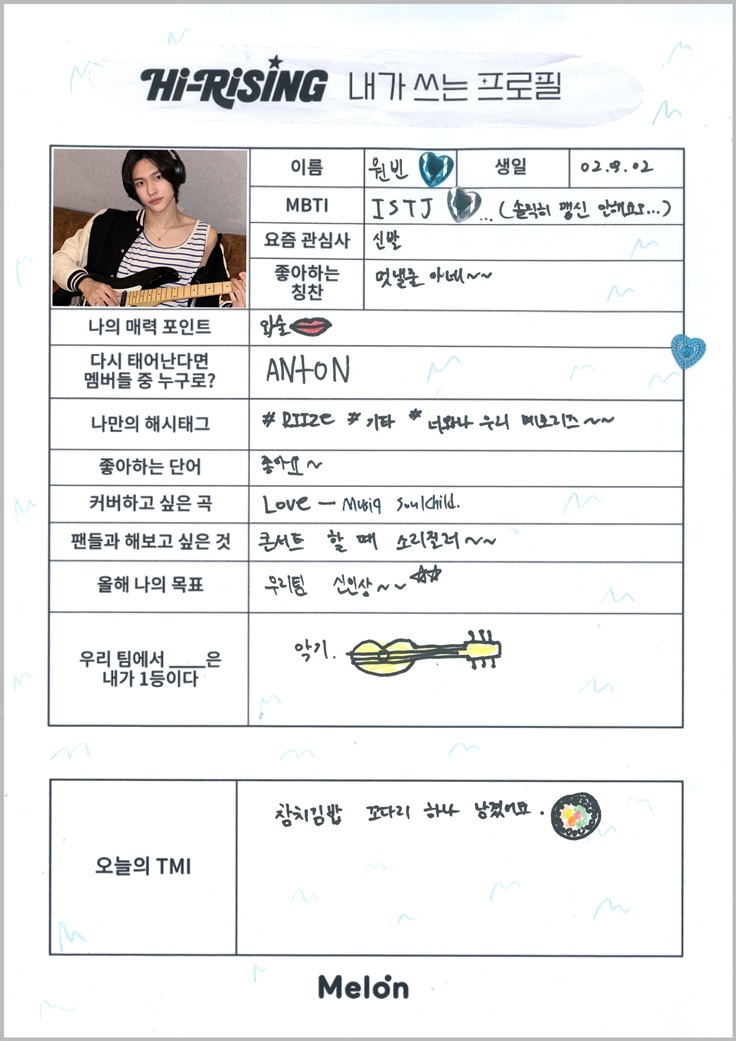 Hi-RiSING 내가 쓰는 프로필
이름 원빈 생일
MBTI ISTJ ...(솔직히 맹신 안해요오...)
요즘 관심사 신발
좋아하는
칭찬 멋낼줄 아네~~
나의 매력 포인트 입술
다시 태어난다면
멤버들 중 누구로? ANTON
나만의 해시태그 # RIIZE # 기타 # 너와나 우리 메모리즈~~
좋아하는 단어 좋아요~
커버하고 싶은 곡 Love - Musiq Soulchild.
팬들과 해보고 싶은 것 콘서트 할 때 소리질러~~
올해 나의 목표 우리팀 신인상~~
우리 팀에서 ____은
내가 1등이다 악기.
오늘의 TMI 참치김밥 꼬다리 하나 남겼어요.
Melon